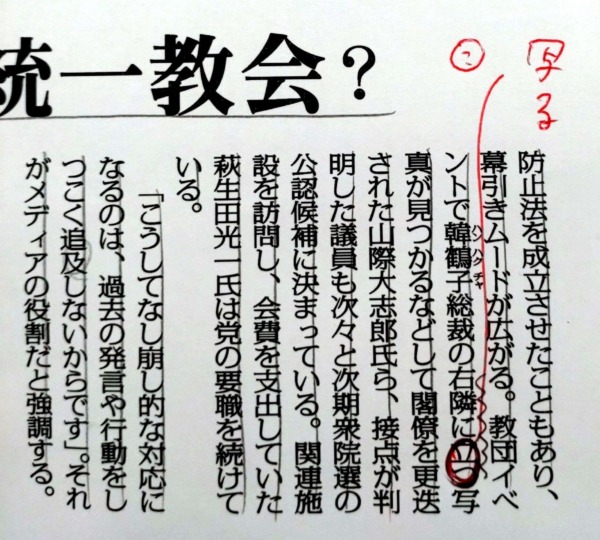 統一教会？
写る
こ
防止法を成立させたこともあり、
幕引きムードが広がる。教団イベ
ントで韓鶴子総裁の右隣に立つ写
ハンハクチャ
真が見つかるなどして閣僚を更迭
された山際大志郎氏ら、接点が判
明した議員も次々と次期衆院選の
公認候補に決まっている。関連施
設を訪問し、会費を支出していた
萩生田光一氏は党の要職を続けて
いる。
「こうしてなし崩し的な対応に
なるのは、過去の発言や行動をし
つこく追及しないからです」。それ
がメディアの役割だと強調する。